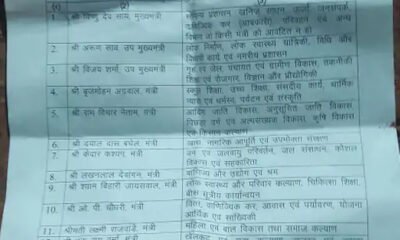 (1) (2) (3)
1. श्री विष्णु देव साय, मुख्यमंत्री सामान्य प्रशासन, खनिज साधन, ऊर्जा, जनसंपर्क,
वाणिज्यिक कर (आबकारी), परिवहन एवं अन्य
विभाग जो किसी मंत्री को आवंटित न हो
2. श्री अरुण साव, उप मुख्यमंत्री लोक निर्माण, लोक स्वास्थ्य यांत्रिकी, विधि और
विधायी कार्य एवं नगरीय प्रशासन
3. श्री विजय शर्मा, उप मुख्यमंत्री गृह एवं जेल, पंचायत एवं ग्रामीण विकास, तकनीकी
शिक्षा एवं रोजगार, विज्ञान और प्रौद्योगिकी
4. श्री बृजमोहन अग्रवाल, मंत्री स्कूल शिक्षा, उच्च शिक्षा, संसदीय कार्य, धार्मिक
न्यास एवं धर्मस्व, पर्यटन एवं संस्कृति
5. श्री राम विचार नेताम, मंत्री आदिम जाति विकास, अनुसूचित जाति विकास,
पिछड़ा वर्ग एवं अल्पसंख्यक विकास, कृषि विकास
एवं किसान कल्याण
6. श्री दयाल दास बघेल, मंत्री खाद्य, नागरिक आपूर्ति एवं उपभोक्ता संरक्षण
7. श्री केदार कश्यप, मंत्री वन एवं जलवायु परिवर्तन, जल संसाधन, कौशल
विकास एवं सहकारिता
8. श्री लखनलाल देवांगन, मंत्री वाणिज्य और उद्योग एवं श्रम
9. श्री श्याम बिहारी जायसवाल, मंत्री लोक स्वास्थ्य और परिवार कल्याण, चिकित्सा शिक्षा,
बीस सूत्रीय कार्यान्वयन
10. श्री ओ. पी. चौधरी, मंत्री वित्त, वाणिज्यिक कर, आवास एवं पर्यावरण, योजना
आर्थिक एवं सांख्यिकी
11. श्रीमती लक्ष्मी राजवाड़े, मंत्री महिला एवं बाल विकास तथा समाज कल्याण